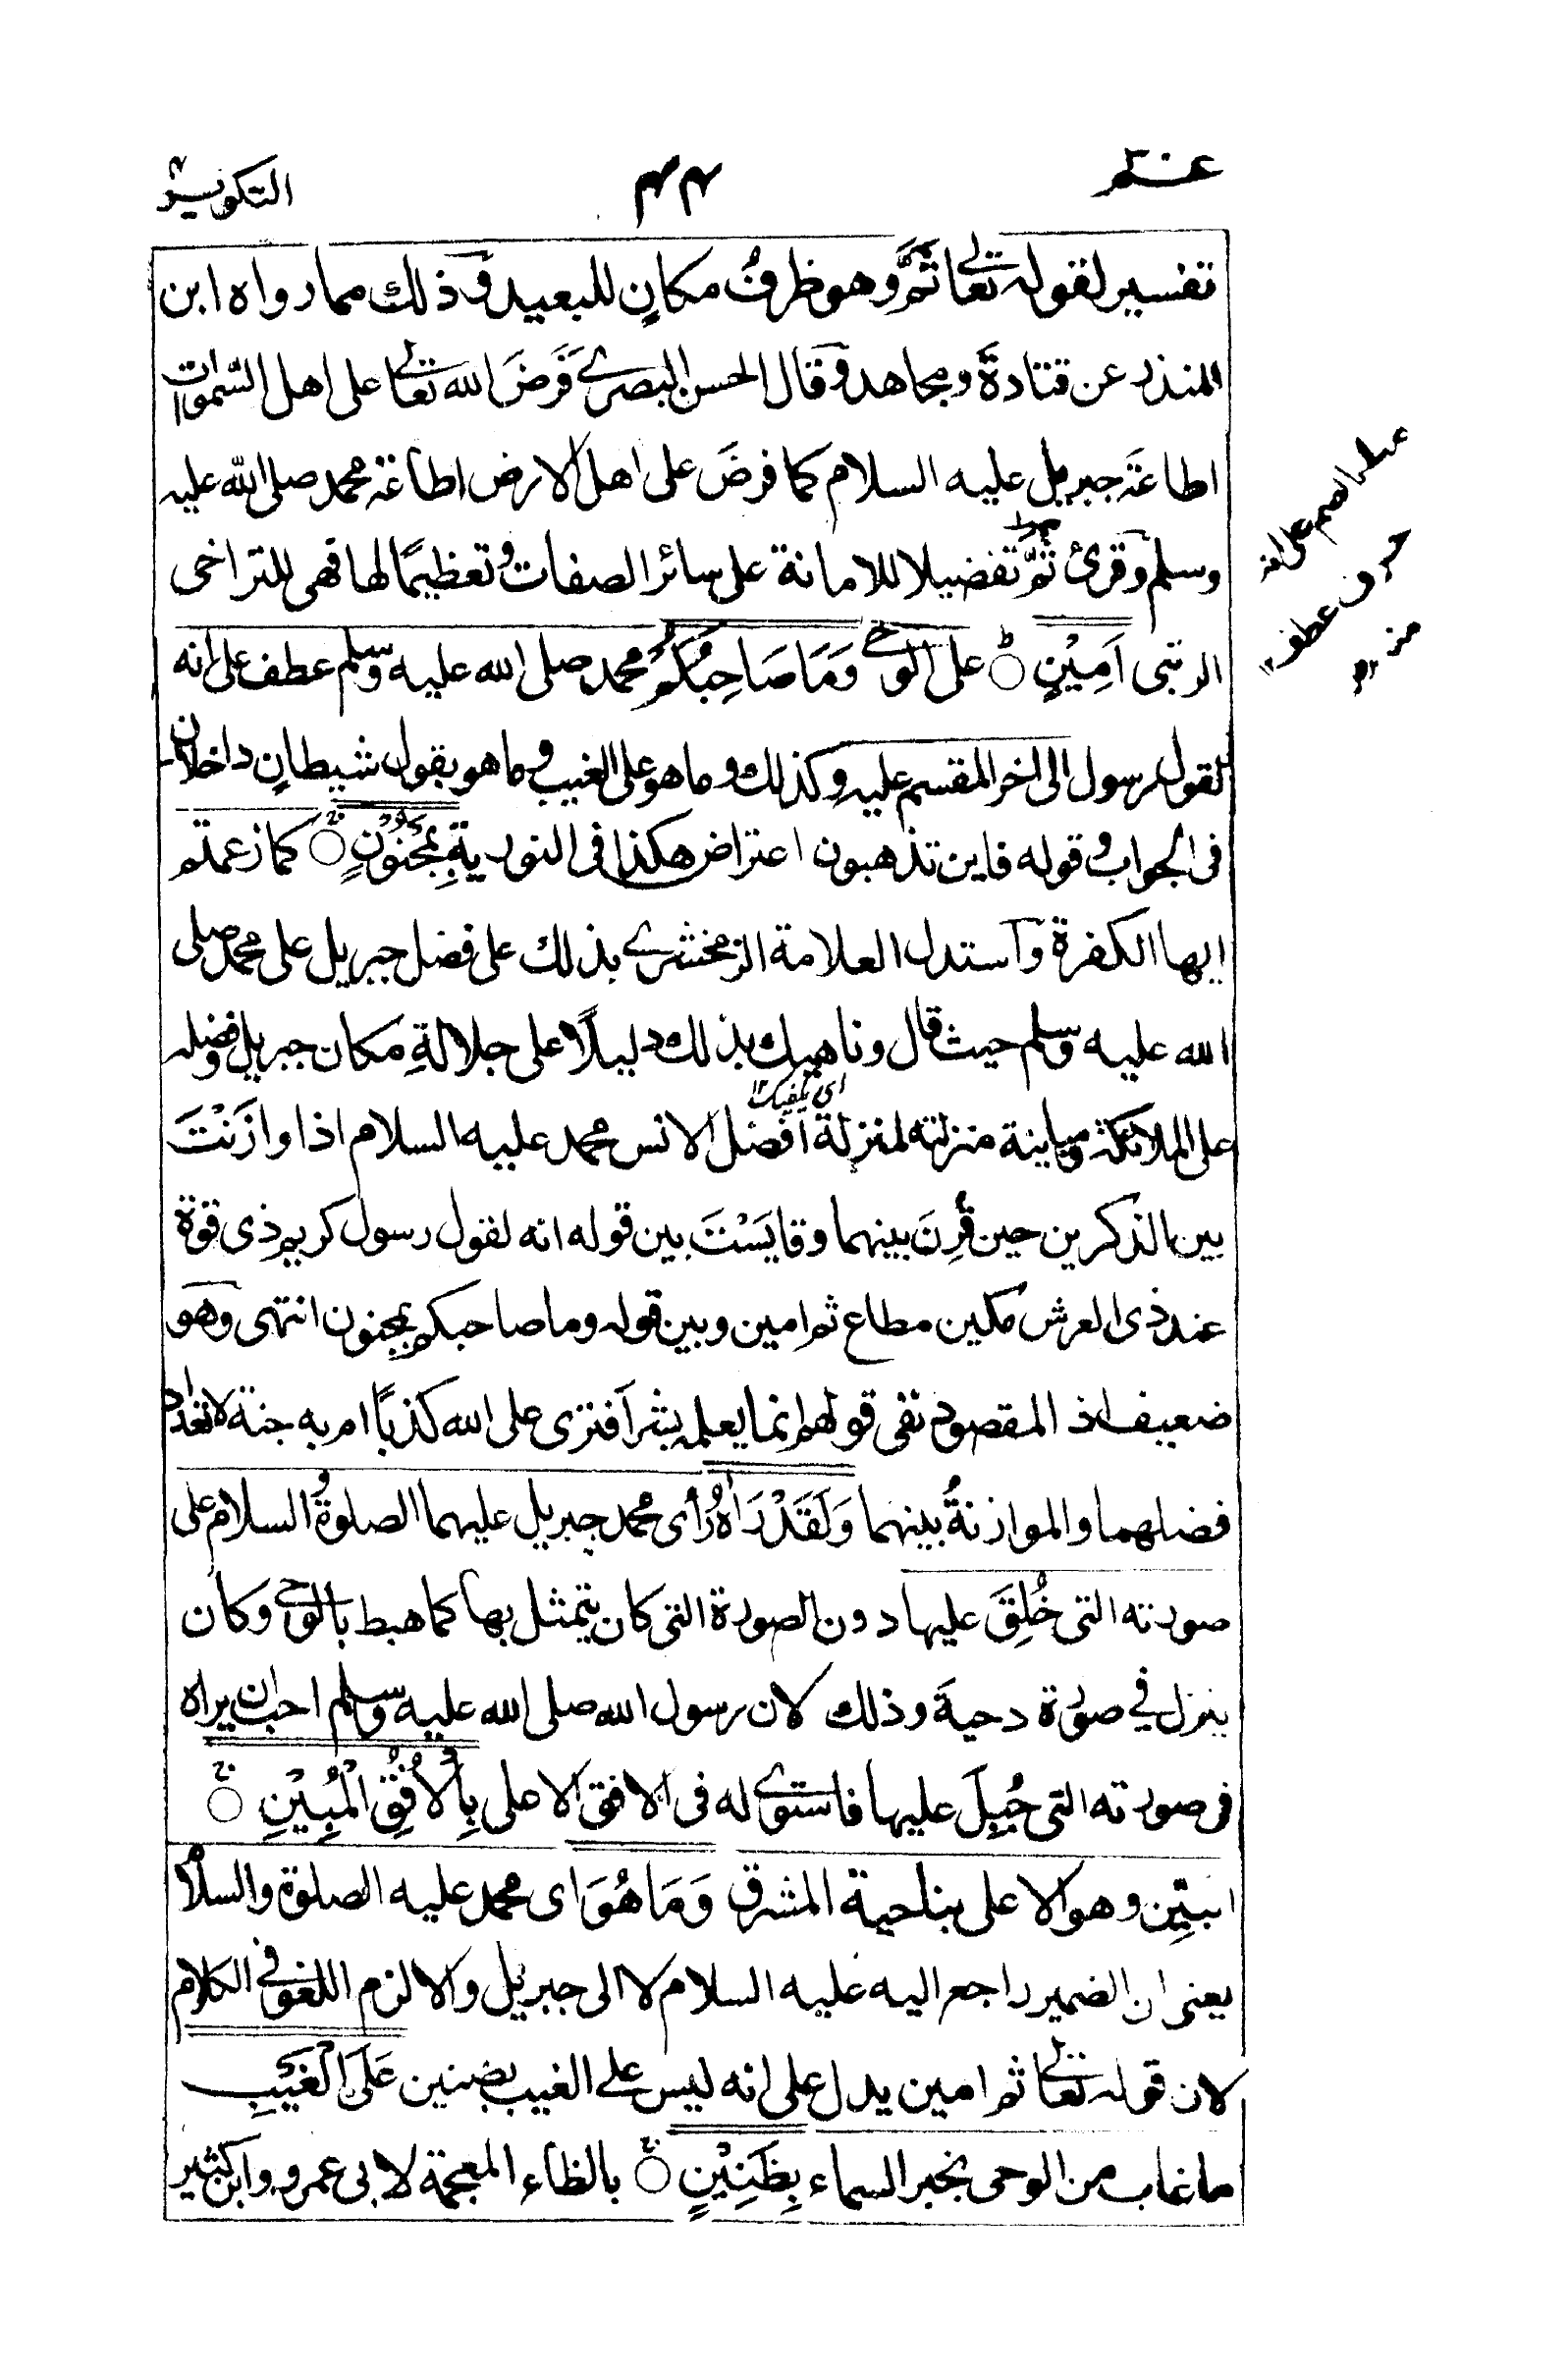 عـم
٤٤
التكوير
تفسير لقوله تعالى ثَمَّ وهو ظرفُ مكانٍ للبعيد وذلك مما رواه ابن
المنذر عن قتادة ومجاهد وقال الحسن البصري فَرَضَ الله تعالى على اهل السموات
اطاعَة جبريل عليه السلام كما فرضَ على اهل الارض اطاعة محمد صلى الله عليه
وسلم وقرئ ثُمَّ تفضيلا للامانة على سائر الصفات وتعظيمًا لها فهى للتراخى
الرتبى اَمِيْنٍ ○ على الوحى وَمَا صَاحِبُكُمْ محمد صلى الله عليه وسلم عطف على انه
لقول رسول الى اخر المقسم عليه وكذلك وما هو على الغيب وما هو بقول شيطانٍ داخلان
فى الجواب وقوله فاين تذهبون اعتراض هكذا فى النورية بِمَجْنُوْنٍ ○ كما زعمتم
ايها الكفرة وآستدل العلامة الزمخشري بذلك على فضل جبريل على محمد صلى
الله عليه وسلم حيث قال وناهيك بذلك دليلًا على جلالةِ مكان جبريل وفضله
اى يكفيك ١٢
على الملائكة ومباينة منزلته لمنزلة افضل الانس محمد عليه السلام اذا وازَنْتَ
بين الذكرين حين قُرِنَ بينهما وقايَسْتَ بين قوله انه لقول رسول كريم ذى قوة
عند ذى العرش مكين مطاع ثم امين وبين قوله وما صاحبكم بمجنون انتهى وهو
ضعيف اذ المقصود نفى قولهم انما يعلمه بشر آفترى على الله كذبًا ام به جنة لا تعداد
فضلهما والموازنةُ بينهما وَلَقَدْ رَاٰهُ رأى محمد جبريل عليهما الصلوة والسلام على
صورته التى خُلِقَ عليها دون الصورة التى كان يتمثل بها كما هبط بالوحى وكان
ينزل في صورة دحية وذلك لان رسول الله صلى الله عليه وسلم احب ان يراه
فى صورته التى جُبِلَ عليها فاستوى له فى الافق الاعلى بِالْاُفُقِ الْمُبِيْنِ ○
البيّن وهو الاعلى بناحية المشرق وَمَا هُوَ اى محمد عليه الصلوة والسلام
يعنى ان الضمير راجع اليه عليه السلام لا الى جبريل والا لزم اللغو فى الكلام
لان قوله تعالى ثم امين يدل على انه ليس على الغيب بضنين عَلَى الْغَيْبِ
ما غاب من الوحى بخبر السماء بِظَنِيْنٍ ○ بالظاء المعجمة لابى عمرو وابن كثير
على انه
حرف عطف ١٢
منه